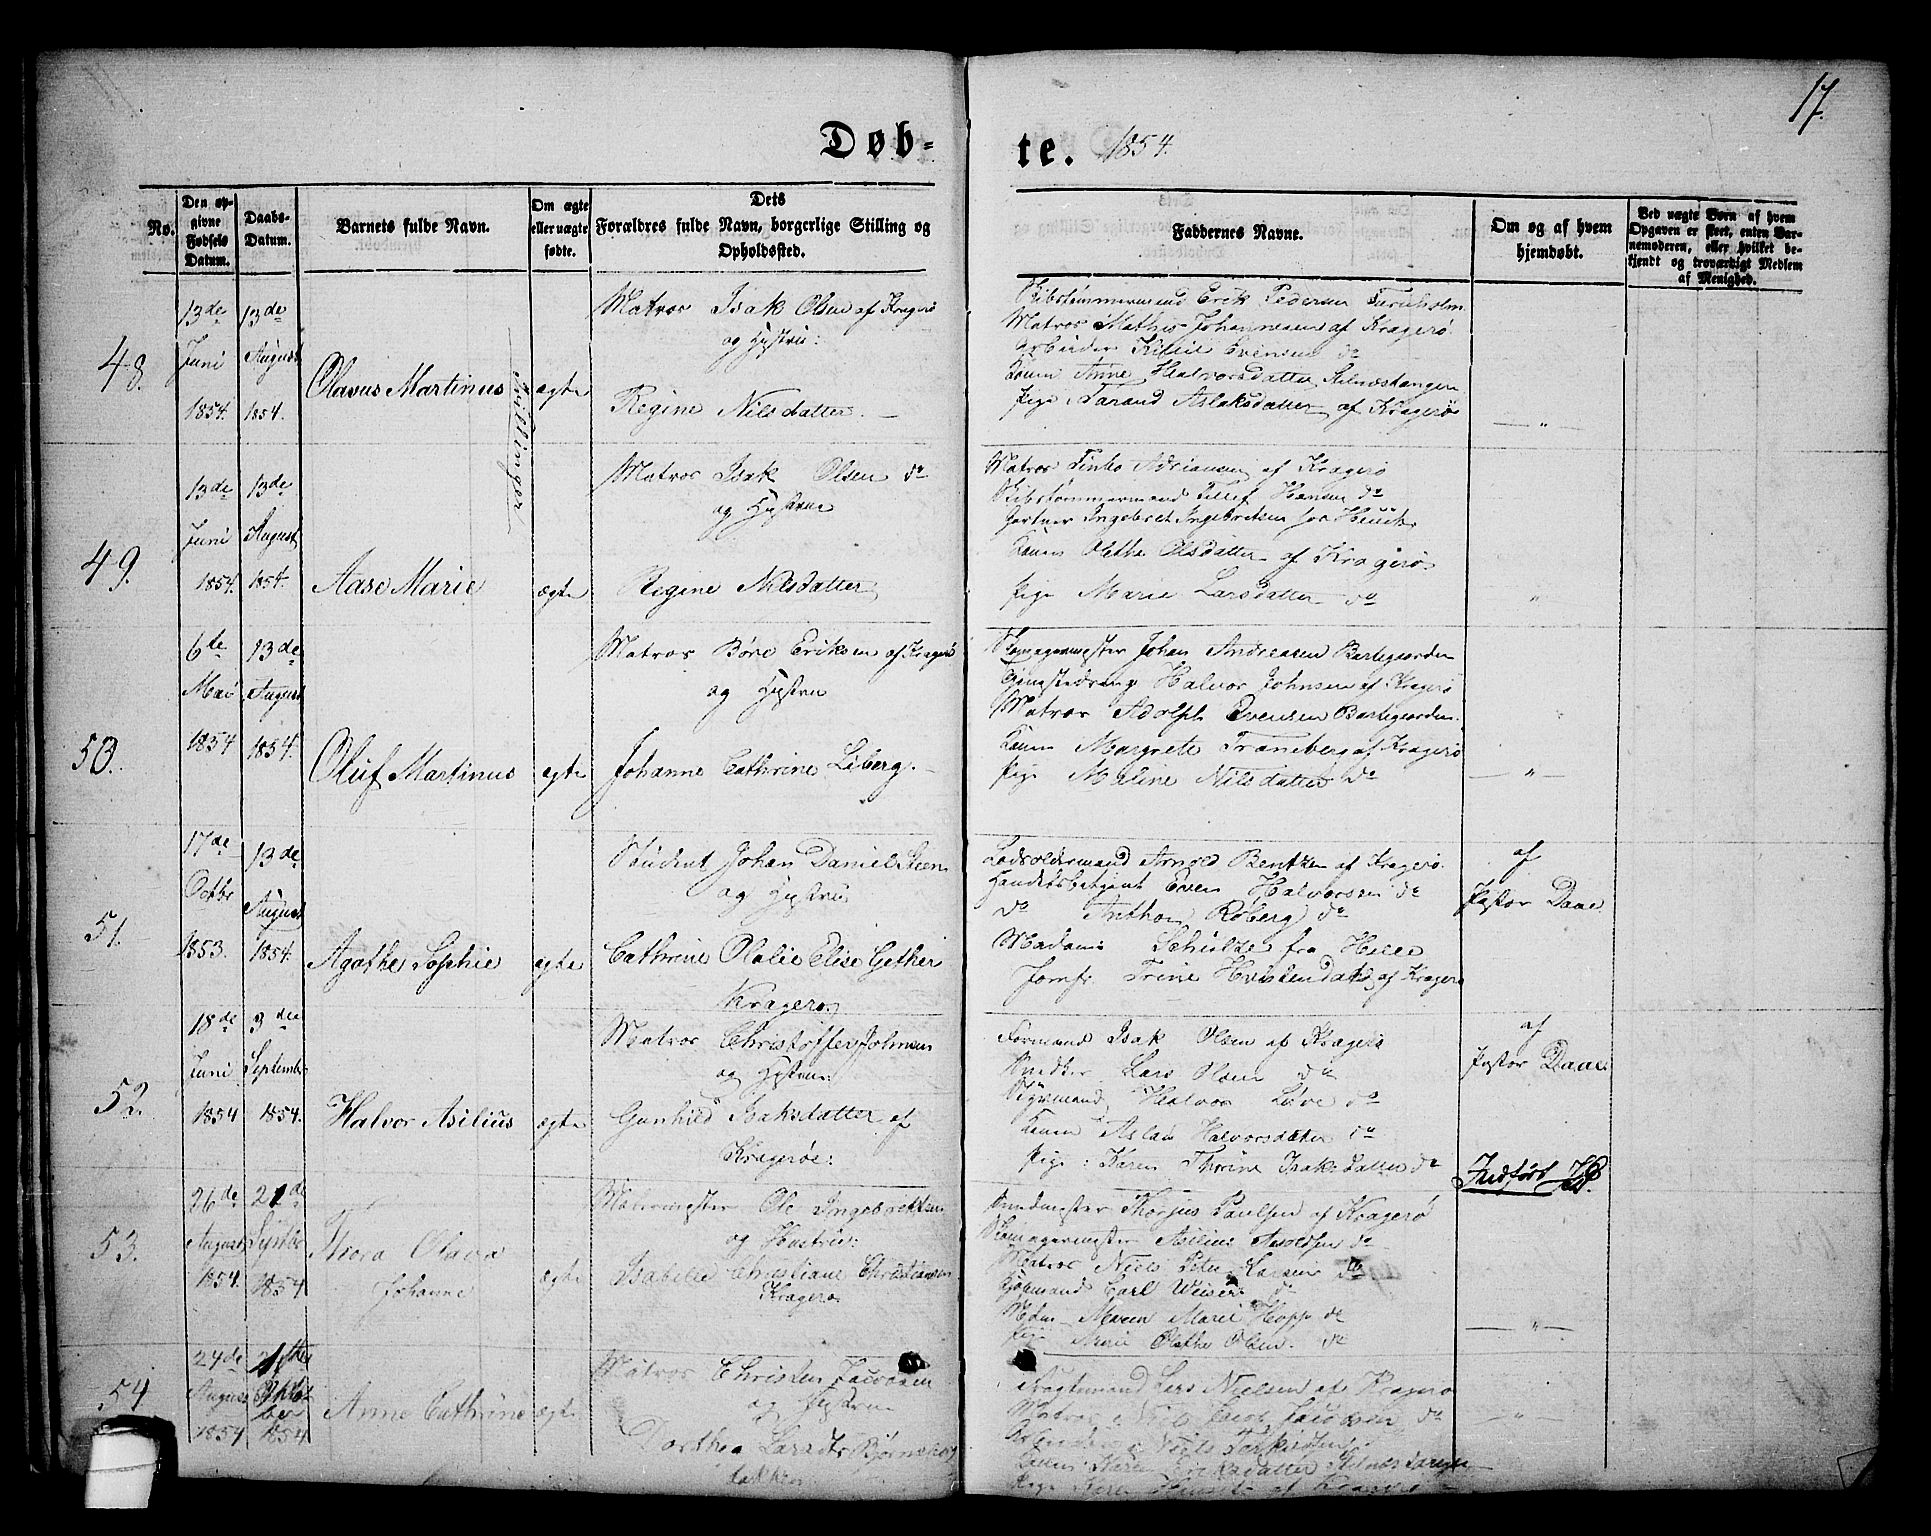 17.
Døb-
te. 1854.
No.
Den op-
givne
Fødsels
Datum.
Daabs-
Datum.
Barnets fulde Navn.
Om ægte
eller uægte
fødte.
Dets
Forældres fulde Navn, borgerlige Stilling og
Opholdssted.
Faddernes Navne.
Om og af hvem
hjemdøbt.
Ved uægte Børn af hvem
Opgaven er skeet, enten Bar-
nemoderen, eller hvilket be-
kjendt og troværdigt Medlem
af Menighed.
48.
13de
Juni
1854.
13de
August
1854.
Olavus Martinus
ægte
Tvillinger
Matros Isak Olsen af Kragerø
og Hustru:
Regine Nilsdatter. —
Skibstømmermand Erik Pedersen Furuholm
Matros Mathis Johannesen af Kragerø
Arbeider Kittil Evensen do
Konen Anne Halvorsdatter Stilnæstangen
Pige Tarand Aslaksdatter af Kragerø
— " —
49.
13de
Juni
1854.
13de
August
1854.
Aase Marie
ægte
Matros Isak Olsen do
og Hustrue
Regine Nilsdatter
Matros Adriansen af Kragerø
Skibstømmermand Tellef Hansen do
Gartner Ingebret Ingebretsen
Konen Olsdatter af Kragerø
Pige Marie Larsdatter do
"
50.
6te
Mai
1854
13de
August
1854.
Oluf Martinus
ægte
Matros Børe Eriksen af Kragerø
og Hustru
Johanne Cathrine Liberg. —
Skomagermester Johan Andreasen Bartegaarden
Halvor Johnsen af Kragerø
Matros Adolph Evensen Bartegaarden.
Konen Margrete Traneberg af Kragerø
Pige Maline Nilsdatter do
— " —
51.
17de
Octbr
1853.
13de
August
1854.
Agathe Sophie
ægte
Student Johan Daniel Steen
og Hustru
Cathrine Olalie Elise Gether
Kragerø.
Lodsoldermand Arnold Bentzen af Kragerø.
Handelsbetjent Even Halvorsen do
do Anthon Roberg do
Madame Schultze fra Helle
Jomfr. Trine Hvistendahl af Kragerø
af
Pastor Daae.
52.
18de
Juni
1854
3die
September
1854.
Halvor Asilius
ægte
Matros Christoffer Johnsen
og Hustrue:
Gunhild Isaksdatter af
Kragerøe:
Formand Isak Olsen af Kragerø
Snedker Lars Olsen do
Styrmand Halvor Love do
Konen Aslau Halvorsdatter do
Pige: Karen Thorine Isaksdatter do
af
Pastor Daae.
Indført
53.
26de
August
1854.
21de
Septbr
1854
Thora Olava
Johanne
ægte
Malermester Ole Ingebretsen
og Hustrue:
Isabelle Christiane Christiansen
Kragerø
Snedmester Thorjus Paulsen af Kragerø
Skomagermester Asilius Aroldsen do
Matros Niels Peter Larsen do
Carl Weiser do
Mdm Maren Marie Hopp do
Pige Marie Olethe Olsen. do
— " —
54
24de
August
1854
1ste
Oktober
1854
Anne Cathrine
ægte
Matros Christen Jacobsen
og Hustrue
Dorthea
Fragtemand Lars Nielsen af Kragerø
Matros Niels Jacob Jacobsen do
Arbeider Niels Terkildsen
Konen: Karen Eriksdatter Stilnæstangen
Pige Karen af Kragerø
— " —